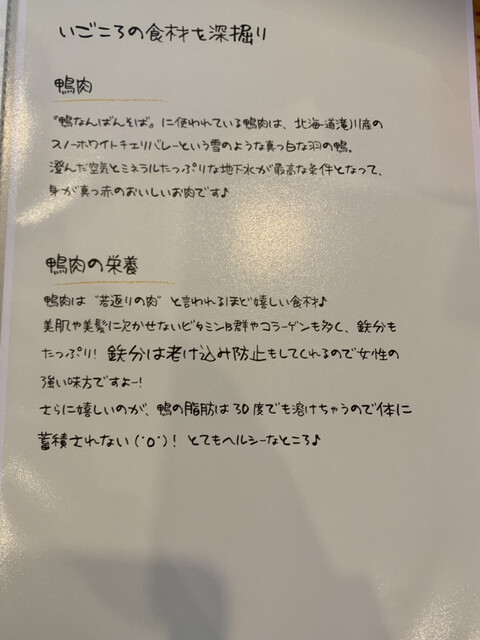 いごころの食材を深掘り
鴨肉
『鴨なんばんそば』に使われている鴨肉は、北海道滝川産の
スノーホワイトチェリバレーという雪のような真っ白な羽の鴨。
澄んだ空気とミネラルたっぷりな地下水が最高な条件となって、
身が真っ赤のおいしいお肉です♪
鴨肉の栄養
鴨肉は"若返りの肉"と言われるほど嬉しい食材♪
美肌や美髪に欠かせないビタミンB群やコラーゲンも多く、鉄分も
たっぷり！鉄分は老け込み防止もしてくれるので女性の
強い味方ですよー！
さらに嬉しいのが、鴨の脂肪は30度でも溶けちゃうので体に
蓄積されない(˙O˙)！とてもヘルシーなところ♪